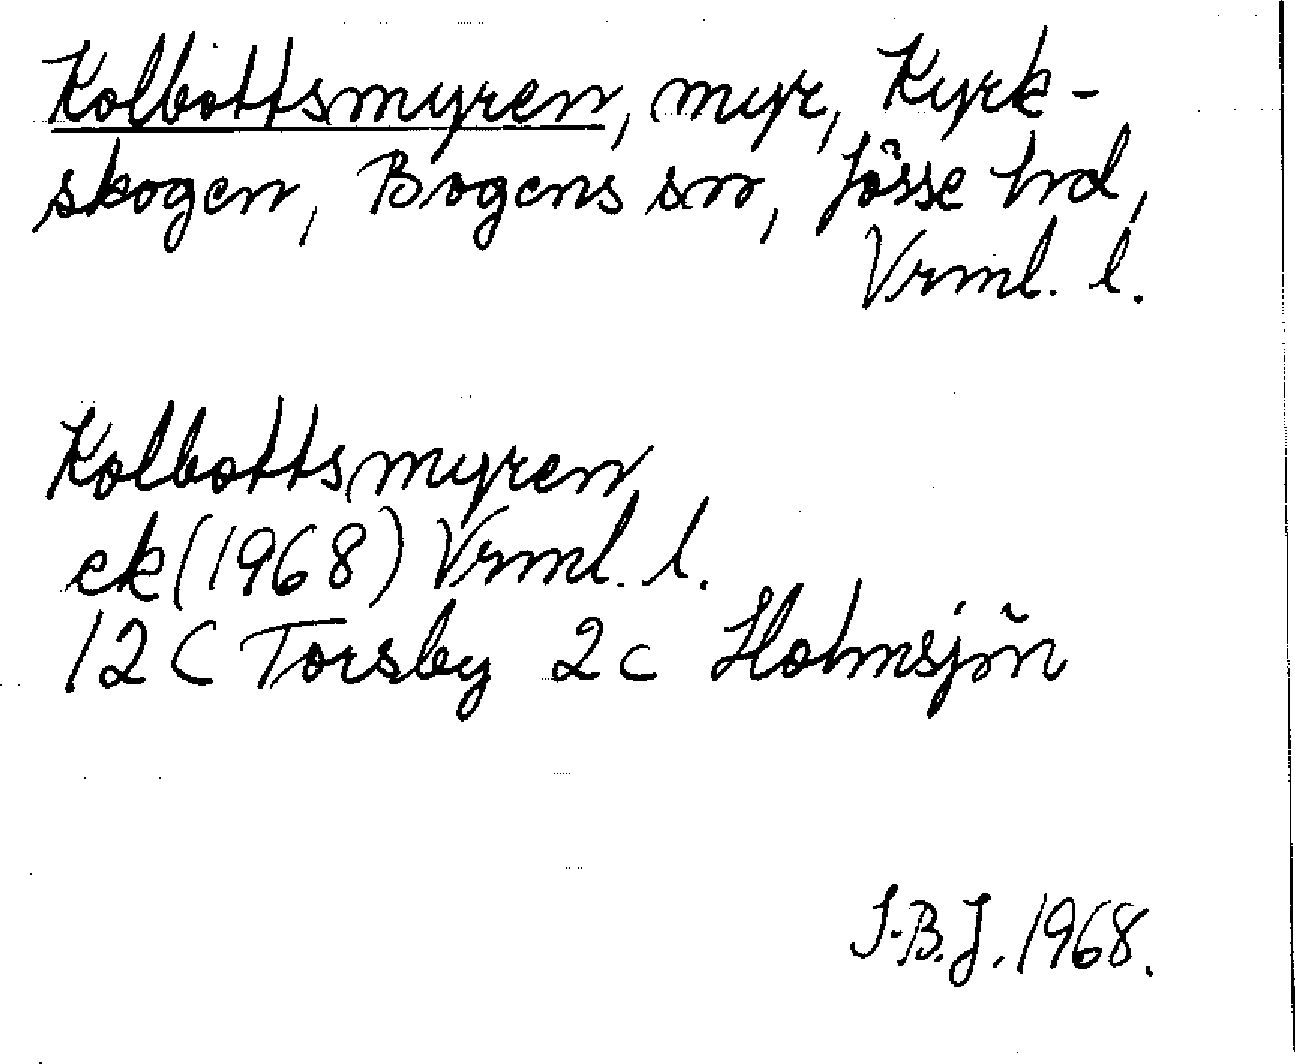 Kolbottsmyren, myr, Kyrk-
skogen, Bogens sn, Jösse hd,
Vrml. l.
Kolbottsmyren
ek (1968) Vrml. l.
12 C Torsby 2c Holmsjön
I.B.J. 1968.